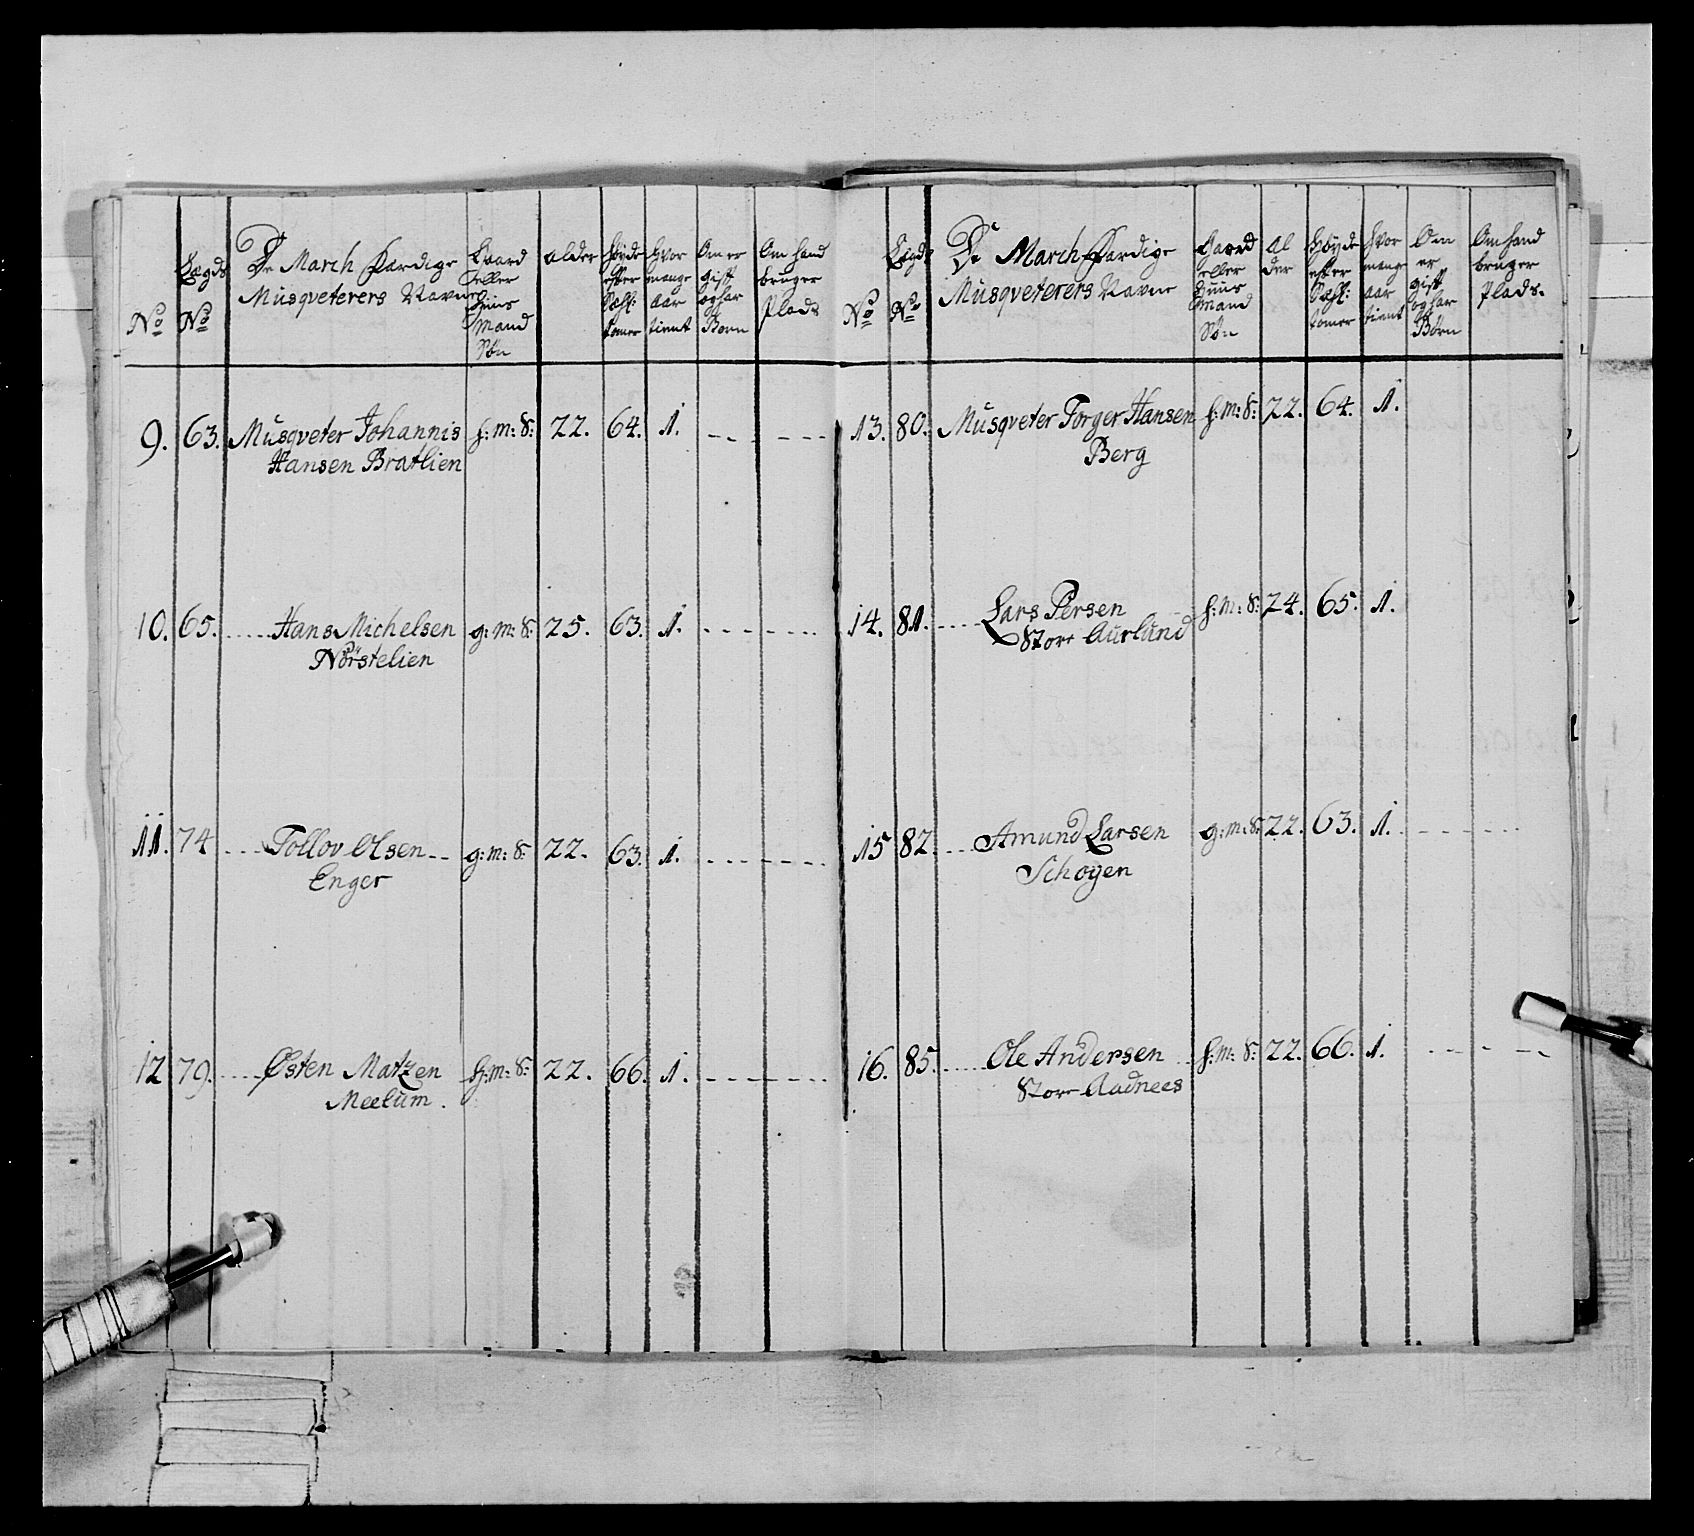 No
Lægds
No
De March Færdige
Musqveterers Navne
Gaard
eller
Huus
Mand
Søn
alder
Høyde
efter
tomer
Hvor
mange
aar
tient
Om er
gift
og har
Børn
Om hand
bruger
Plads
9. 63. Musqveter Johannis h:m:S: 22. 64. 1.
Hansen Bratlien
10. 65. Hans Michelsen g:m:S: 25. 63. 1.
Nörstelien
11. 74 Tollov Olsen g:m:S: 22. 63. 1.
Enger
12 79. Østen Matzen h:m:S: 22. 66. 1.
Meelum.
No
Lægds
No
De March Færdige
Musqveterers Navne
Gaard
eller
Huus
Mand
Søn
Al
der
Høyde
efter
tomer
Hvor
mange
aar
tient
Om
er
gift
og har
Børn
Om hand
bruger
Plads.
13. 80. Musqveter Torger Hansen h:m:S: 22. 64. 1.
Berg
14. 81. Lars Persen h:m:S: 24. 65. 1.
Store Aurlund
15 82. Amund Larsen g:m:S: 22. 63. 1.
Schoyen
16. 85. Ole Andersen h:m:S: 22. 66. 1.
Store Aadnees